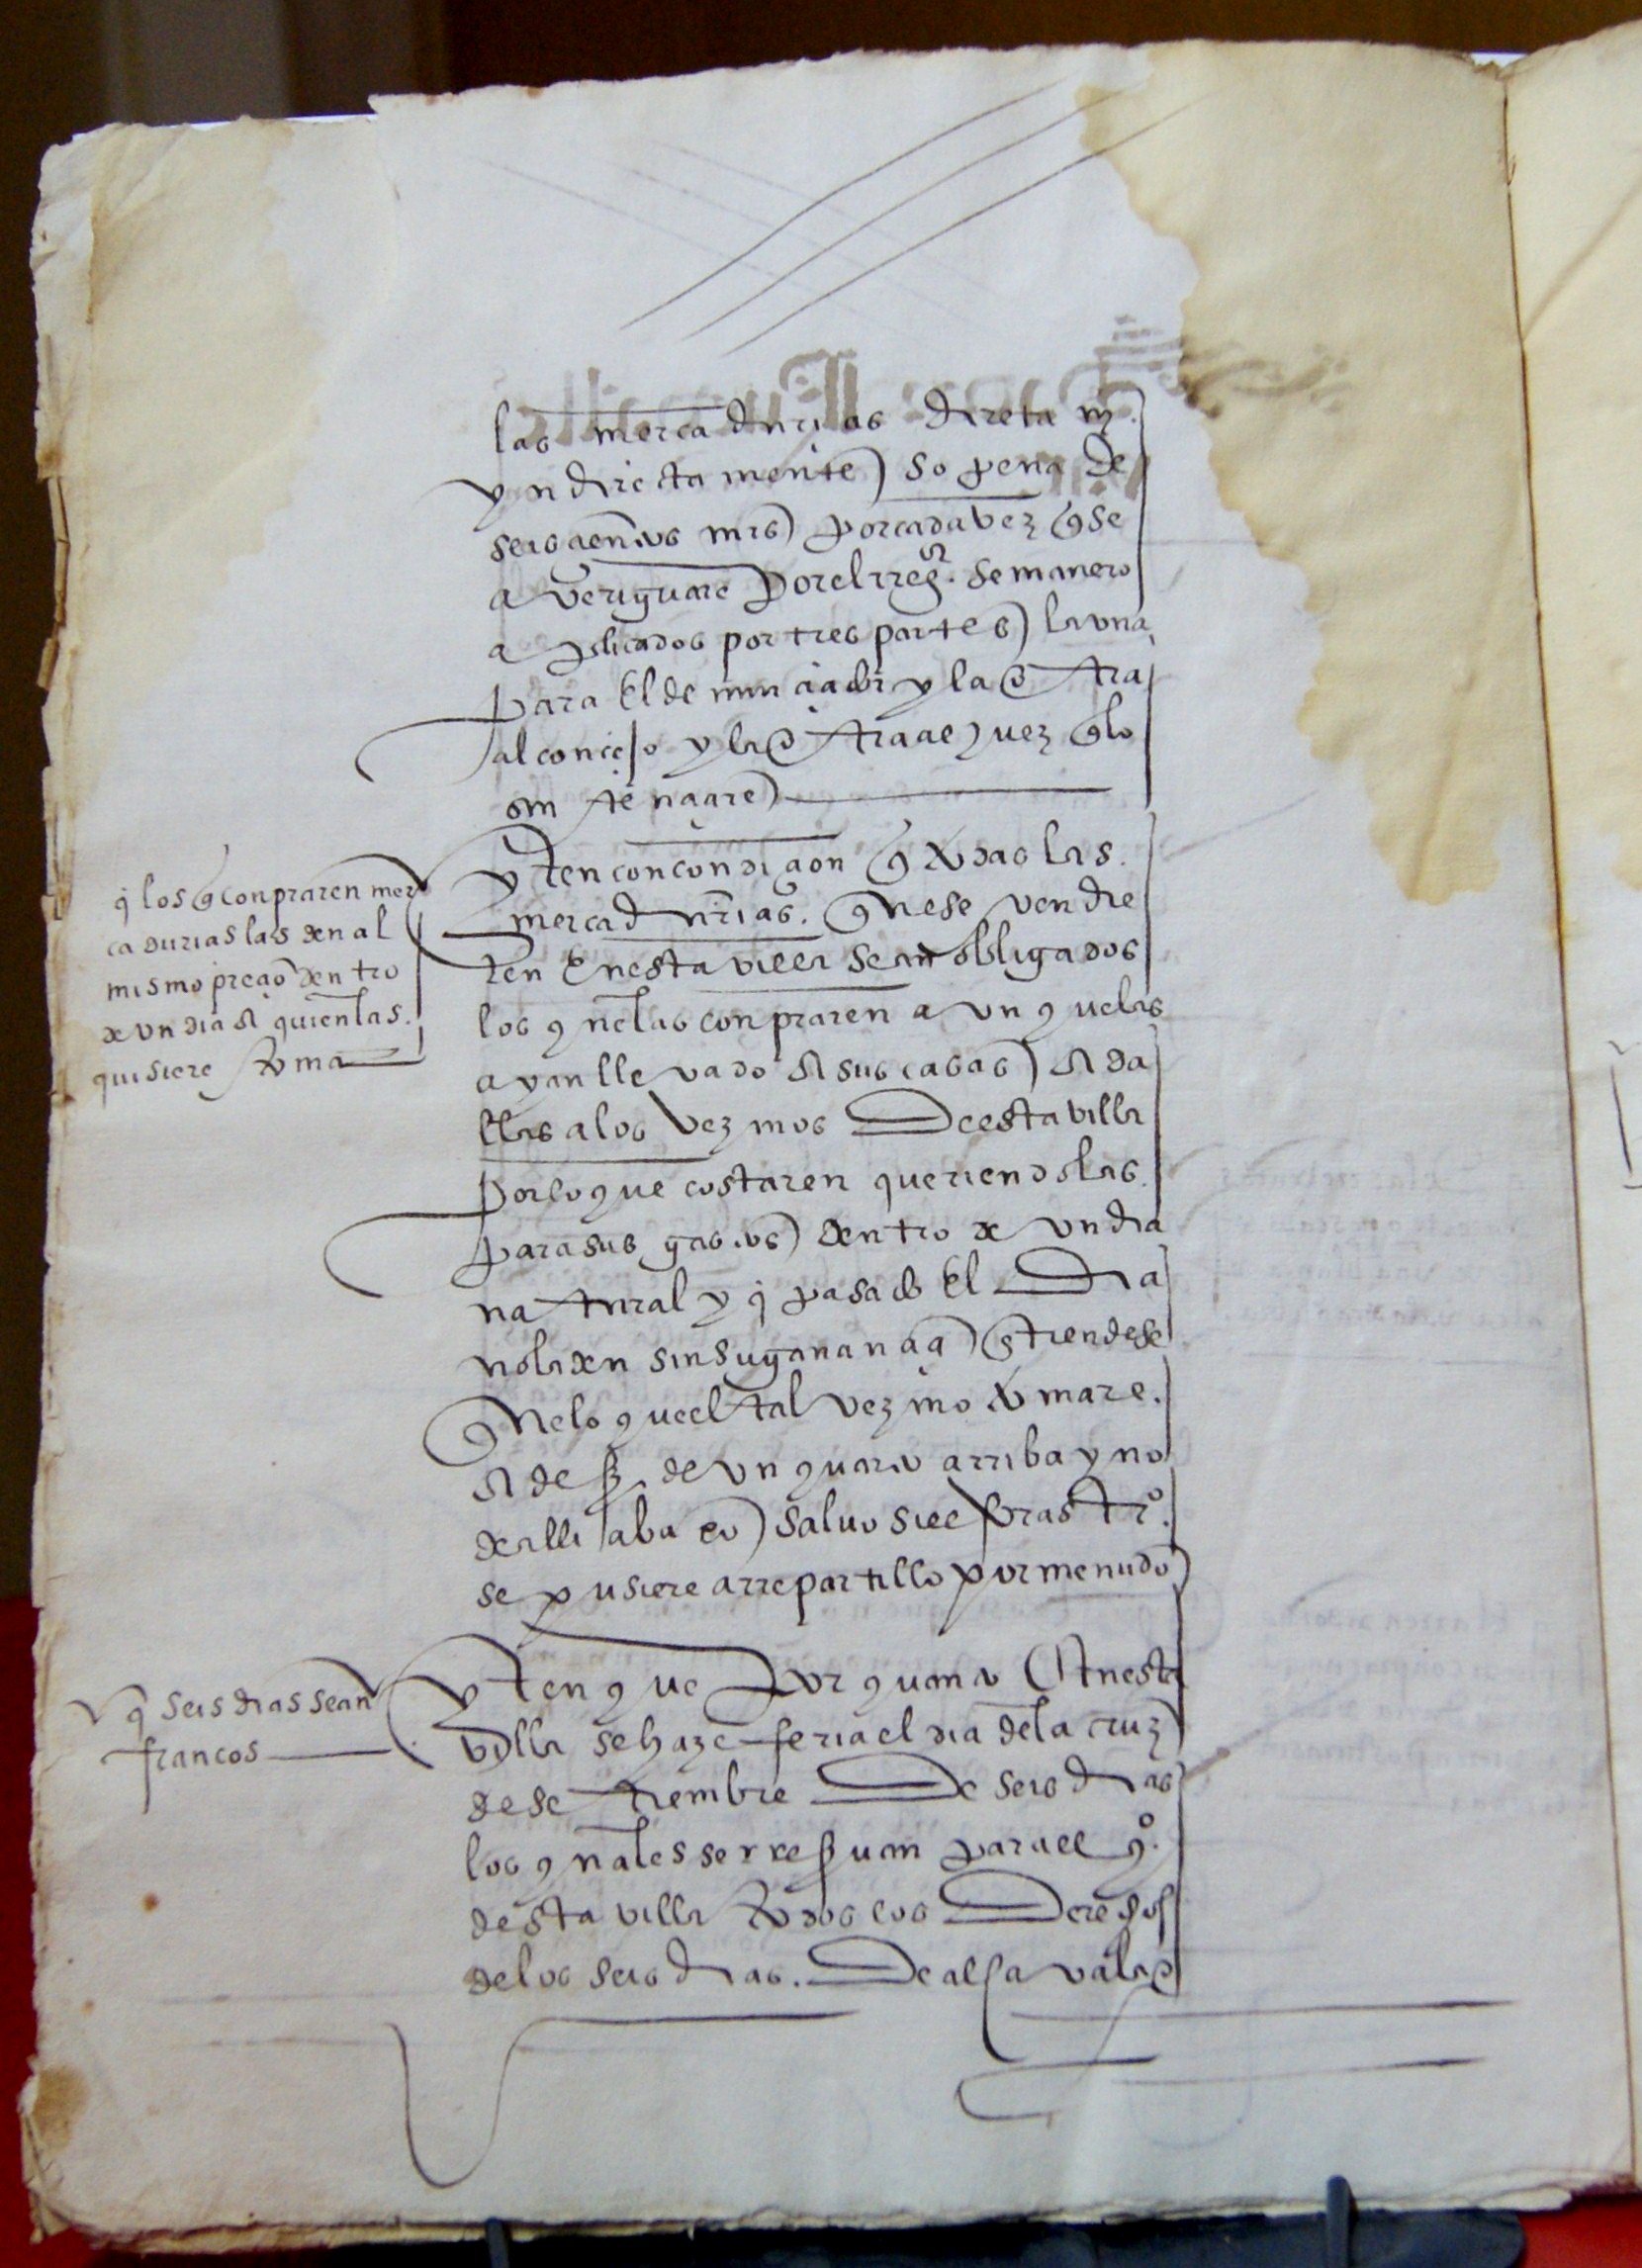 las mercadurias direta m.
yndirectamente so pena de
seiscientos mrs por cada vez q se
averiguare por el rregor. semanero
aplicados por tres partes la una
para el denunciador y la otra
al concejo y la otra al juez q lo
sentenciare
yten con condicion q todas las
mercadurias que se vendie
ren en esta villa sean obligados
los que las conpraren aunque las
ayan llevado a sus casas a da
llas a los vezinos de esta villa
por lo que costaren queriendolas
para sus gastos dentro de un dia
natural y q pasado el dia
no la den sin su ganancia entiendese
que lo que el tal vezino tomare
a de ser de un quarto arriba y no
de alli abaxo salvo si el forastro.
se pusiere a rrepartillo por menudo
q los q conpraren mer
cadurias las den al
mismo precio dentro
de un dia a quien las
quisiere toma
yten que por quanto en esta
villa se haze feria el dia de la cruz
de setiembre de seis dias
los quales se rreservan para el qo.
desta villa todos los derechos
de los seis dias. de alcavala
q seis dias sean
francos